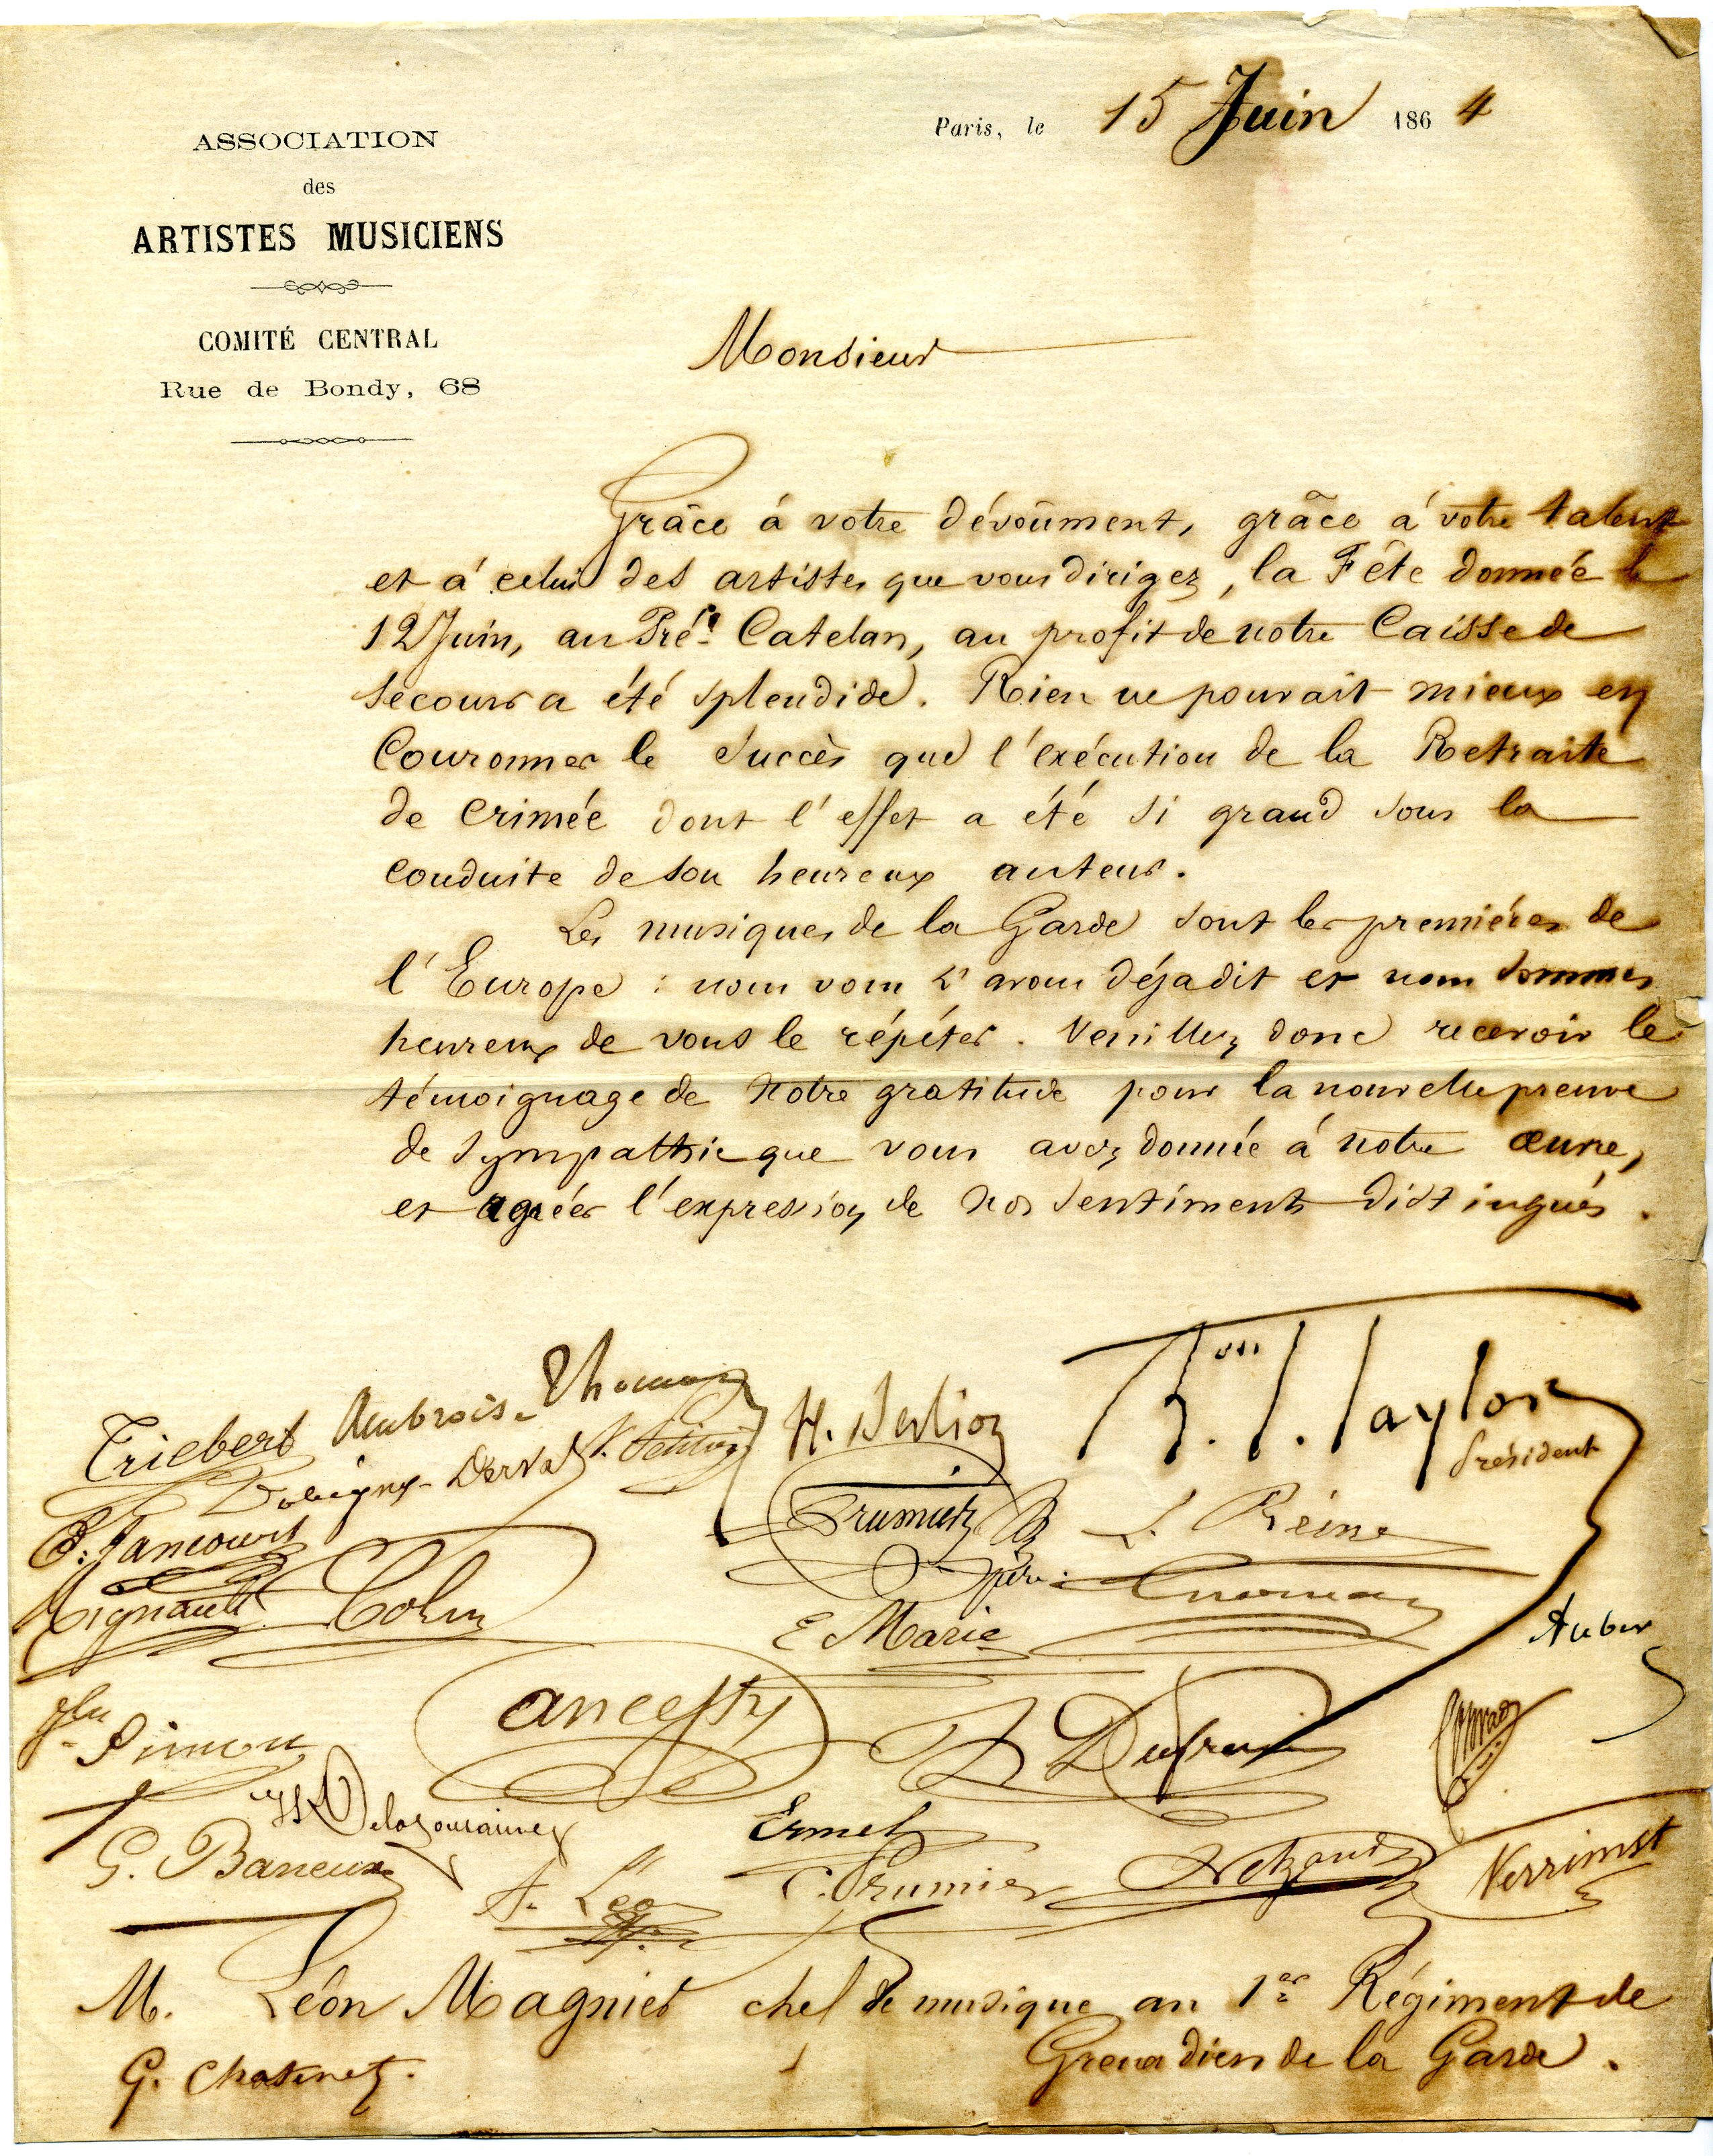 ASSOCIATION
des
ARTISTES MUSICIENS
COMITÉ CENTRAL
Rue de Bondy, 68
Paris, le 15 Juin 1864
Monsieur
Grâce à votre dévoûment, grâce à votre talent
et à celui des artistes que vous dirigez, la Fête donnée le
12 Juin, au Pré Catelan, au profit de notre Caisse de
secours a été splendide. Rien ne pouvait mieux en
Couronner le succès que l'exécution de la Retraite
de Crimée dont l'effet a été si grand sous la
conduite de son heureux auteur.
Les musiques de la Garde sont les premières de
l'Europe : nous vous l'avons déja dit et nous sommes
heureux de vous le répéter. Veuillez donc recevoir le
témoignage de notre gratitude pour la nouvelle preuve
de sympathie que vous avez donnée à notre œuvre,
et agréer l'expression de nos sentiments distingués.
Bon J. Taylor
Président
Triebert Ambroise Thomas H. Berlioz
Dobigny-Derval
E. Jancourt Prumier père L. Reine
Colin
E Marie Auber
Jn Simon
Ancessy
Delafontaine
Ermel
G. Baneux
A. Léo C. Prumier Verrimst
M. Léon Magnier chef de musique au 1er Régiment de
Grenadiers de la Garde.
G. Chatenet.